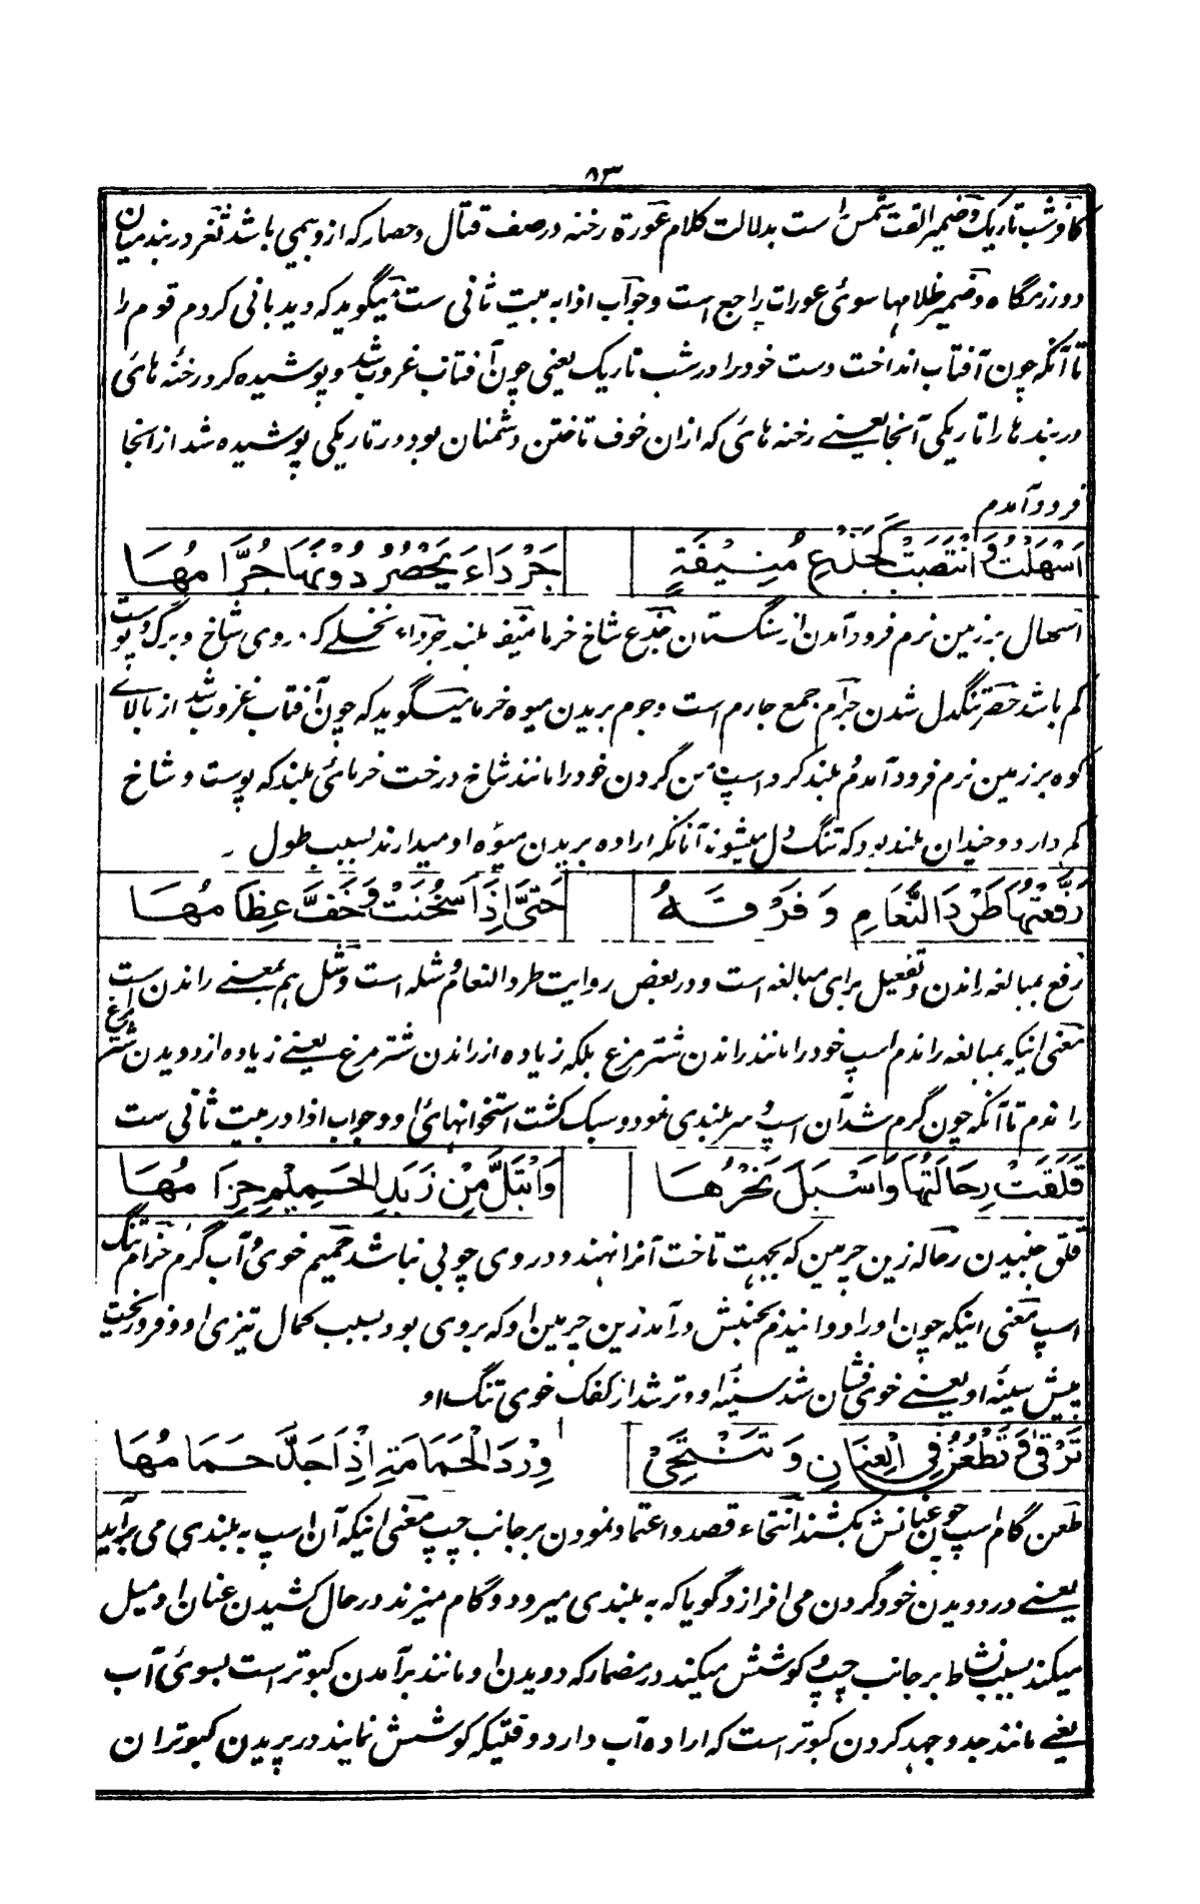 ۸۳
کافر شب تاریک و ضمیر القت شمس راست بدلالت کلام عورة رخنه در صف قتال و حصار که ازو بیمی باشد ثغر دربند میان
دو رزمگاه و ضمیر ظلامها سوئ عورات راجع است و جواب اذا به بیت ثانی ست میگوید که دیدبانی کردم قوم را
تا آنکه چون آفتاب انداخت دست خود را در شب تاریک یعنی چون آفتاب غروب شد و پوشیده کرد رخنه های
دربند ها را تاریکی آنجا یعنے رخنه هائ که ازان خوف تاختن دشمنان بود در تاریکی پوشیده شد از انجا
فرود آمدم
اَسْهَلْتُ وَانْتَصَبَتْ كَجِذْعِ مُنِيْفَةٍ جَرْدَاءَ يَحْصَرُ دُوْنَهَا جُرَّامُهَا
اسهال بر زمین نرم فرود آمدن از سنگستان جذع شاخ خرما منیفه بلند جرداء نخلے که روی شاخ و برگ و پوست
کم باشد حصر تنگدل شدن جرام جمع جارم است و جرم بریدن میوه خرما میگوید که چون آفتاب غروب شد از بالائے
کوه بر زمین نرم فرود آمدم بلند کرد اسپ من گردن خود را مانند شاخ درخت خرمائ بلند که پوست و شاخ
کم دارد و چندان بلند بود که تنگ دل میشوند آنانکه اراده بریدن میوه او میدارند بسبب طول ۔
رَفَّعْتُهَا طَرْدَ النَّعَامِ وَفَرْقَهُ حَتّٰى اِذَا سَخُنَتْ وَخَفَّ عِظَامُهَا
رفع بمبالغه راندن و تفعیل برای مبالغه است و در بعض روایت طرد النعام وشله است و شل هم بمعنے راندن است
معنی اینکه بمبالغه راندم اسپ خود را مانند راندن شتر مرغ بلکه زیاده از راندن شتر مرغ یعنے زیاده از دویدن شتر مرغ
را ندم تا آنکه چون گرم شد آن اسپ و سر بلندی نمود و سبک گشت استخوانهائ او و جواب اذا در بیت ثانی ست
قَلِقَتْ رِحَالَتُهَا وَاَسْبَلَ نَحْرُهَا وَابْتَلَّ مِنْ زَبَدِ الْحَمِيْمِ حِزَامُهَا
قلق جنبیدن رحاله زین چرمین که بجهت تاخت آنرا نهند و در وی چوبی نباشد حمیم خوی و آب گرم حزام تنگ
اسپ معنی اینکه چون او را دوانیدم بجنبش در آمد زین چرمین او که بروی بود بسبب کمال تیزی او و فرو ریخت
پیش سینهٔ او یعنے خوی فشان شد سینهٔ او و تر شد از کفک خوی تنگ او
تَرْقٰى وَتَطْعُنُ فِى الْعِنَانِ وَتَنْتَحِىْ وِرْدَ الْحَمَامَةِ اِذْ اَجَدَّ حَمَامُهَا
طعن گام اسپ چون عنانش بکشند انتحاء قصد و اعتماد نمودن بر جانب چپ معنی اینکه آن اسپ به بلندی می برآید
یعنے در دویدن خود گردن می افرازد گویا که به بلندی میرود و گام میزند در حال کشیدن عنان او میل
میکند بسبب نشاط بر جانب چپ و کوشش میکند در مضمار که دویدن او مانند برآمدن کبوتر است بسوئ آب
یغنے مانند جد و جهد کردن کبوتر است که اراده آب دارد وقتیکه کوشش نمایند در پریدن کبوتران